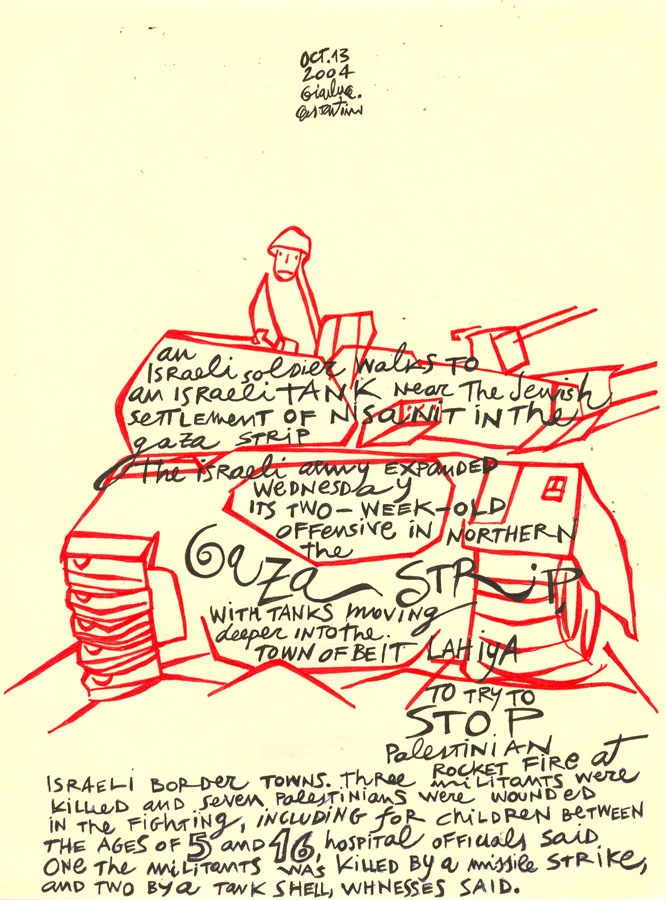 OCT.13
2004
Gianluca
Costantini
an
Israeli soldier walks TO
an ISRaeli TANK near The Jewish
SeTTLEMENT OF NisaNIT IN The
gaza STRIP
The israeli army EXPANDED
WedNesDay
ITS TWO-WEEK-OLD
OFFensive IN NORTHERN
the
Gaza STRiP
WITH TANKS moving
deeper INTO the.
TOWN OF BEIT LAHiyA
TO TRY TO
STOP
PalesTiNiAN
ROCKET FIRE aT
ISRAELI BORDer TOWNS. Three militANTS were
killed and seven PalestiniANS were wouNDeD
IN THE FIGHTING, INCLUDING FOR CHILDREN BETWEEN
THE AGES OF 5 AND 16, hospital OFFicials SaiD
ONE THE miLiTANTS WAS KILLED BY a missile STRIKE,
AND TWO BY a TANK SHELL, WHNESSES SAID.